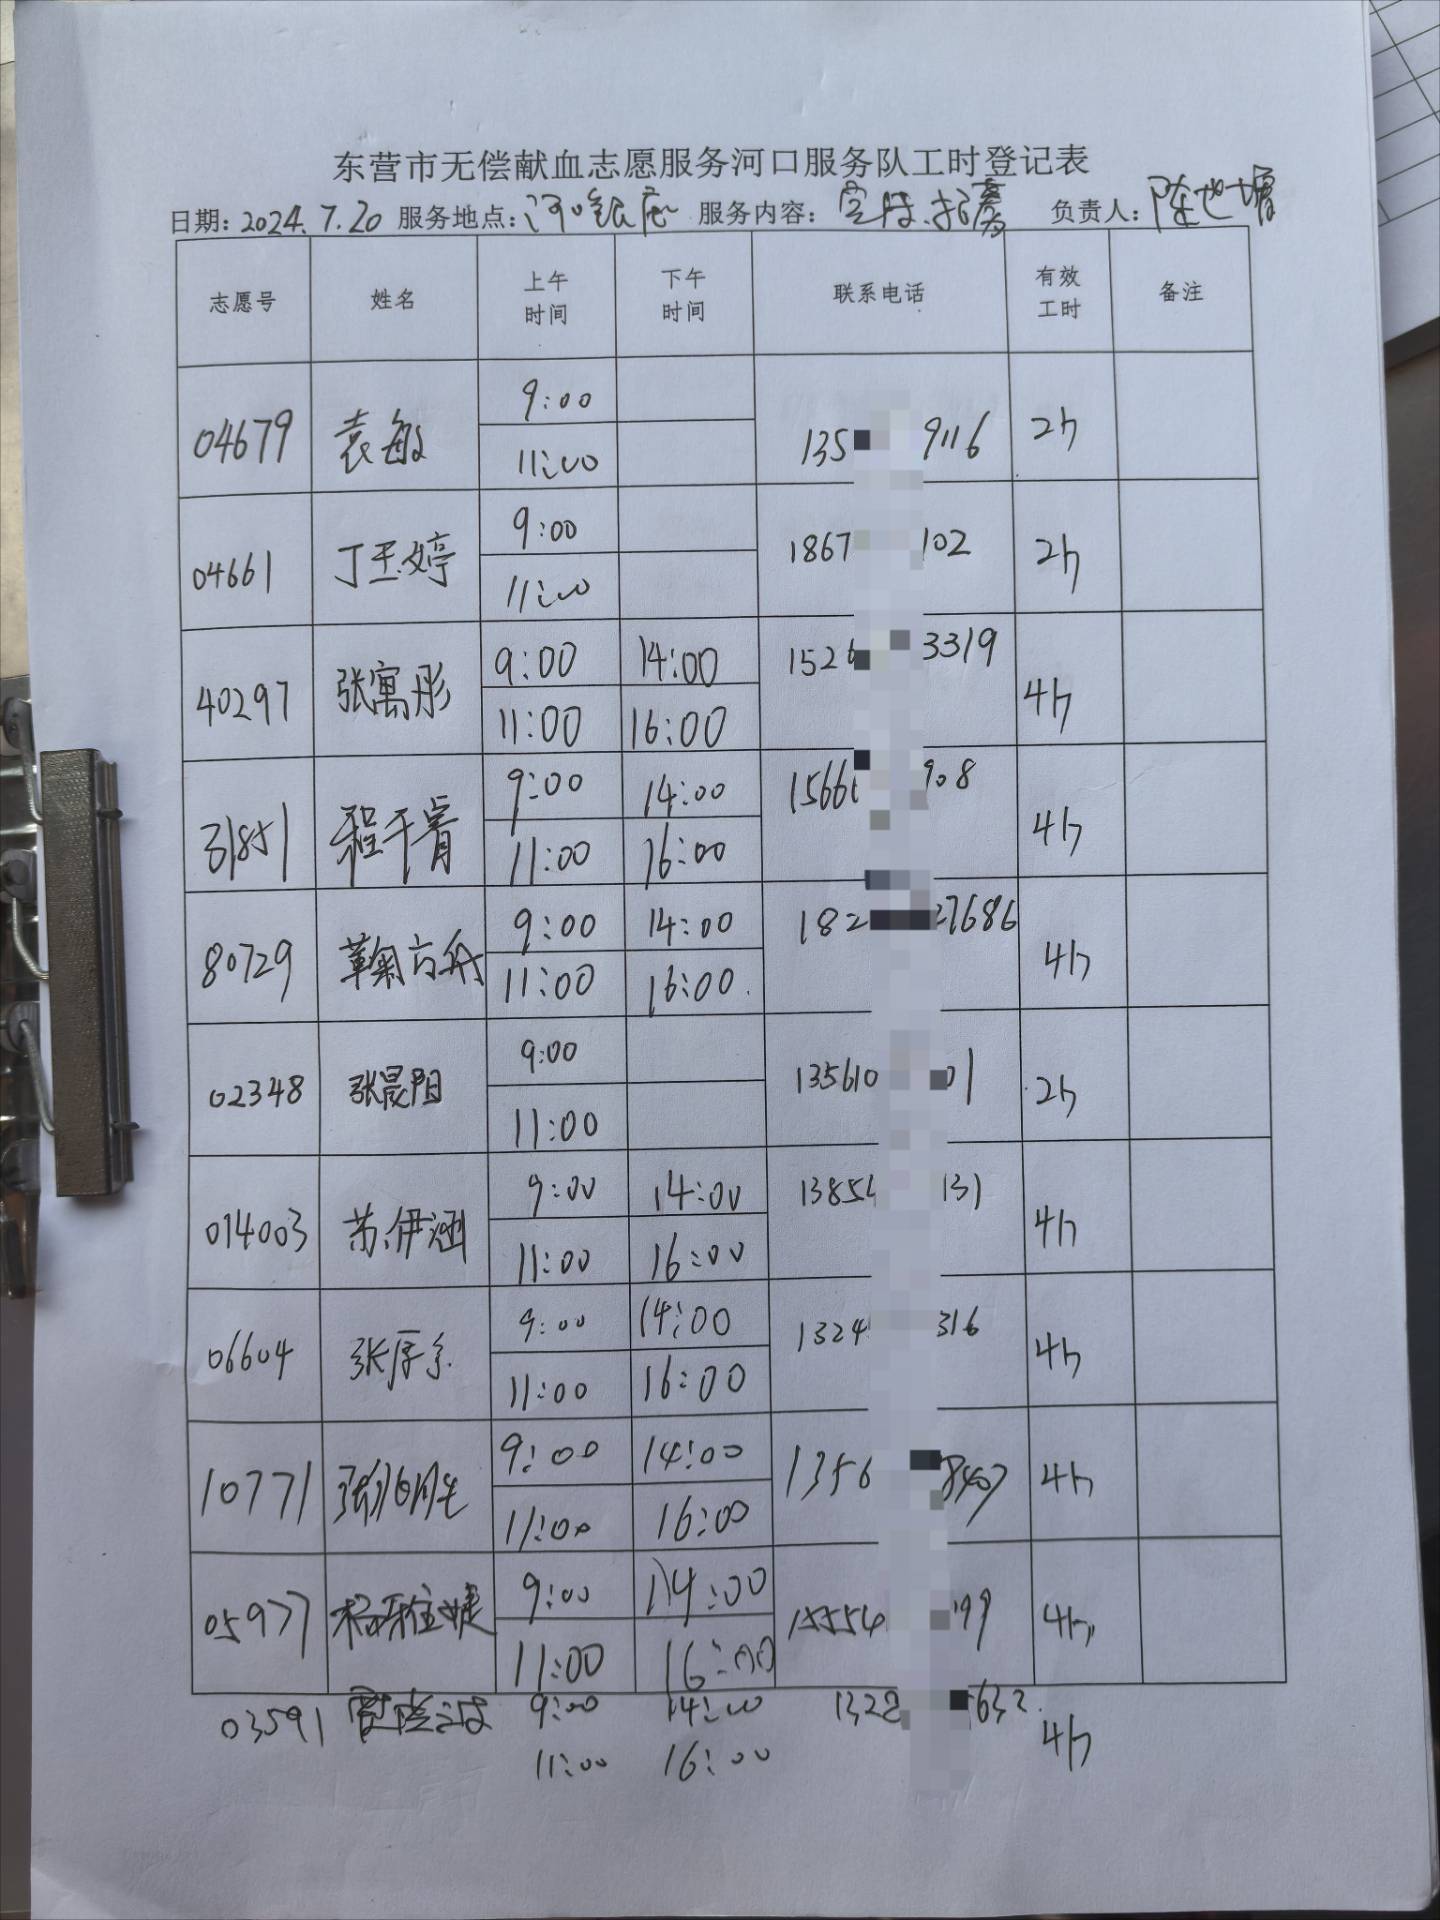 东营市无偿献血志愿服务河口服务队工时登记表
日期: 2024.7.20 服务地点: 河口银座 服务内容: 宣传.招募 负责人: 陈
志愿号 姓名 上午时间 下午时间 联系电话 有效工时 备注
04679 袁敏 9:00 11:00 135 9116 2h
04661 丁玉婷 9:00 11:00 1867 102 2h
40297 张寓彤 9:00 11:00 14:00 16:00 152 3319 4h
31851 程千睿 9:00 11:00 14:00 16:00 1566 908 4h
80729 鞠方舟 9:00 11:00 14:00 16:00 182 27686 4h
02348 张晨阳 9:00 11:00 135610 01 2h
014003 苏伊涵 9:00 11:00 14:00 16:00 1385 131 4h
06604 张 9:00 11:00 14:00 16:00 1324 316 4h
10771 张 9:00 11:00 14:00 16:00 1356 8407 4h
05977 杨雅婕 9:00 11:00 14:00 16:00 15554 99 4h
03591 9:00 14:00 132 632 4h
11:00 16:00